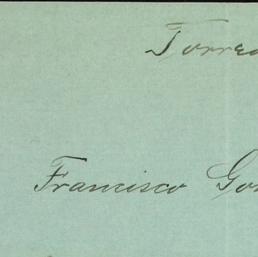 Torreo
Francisco Gon